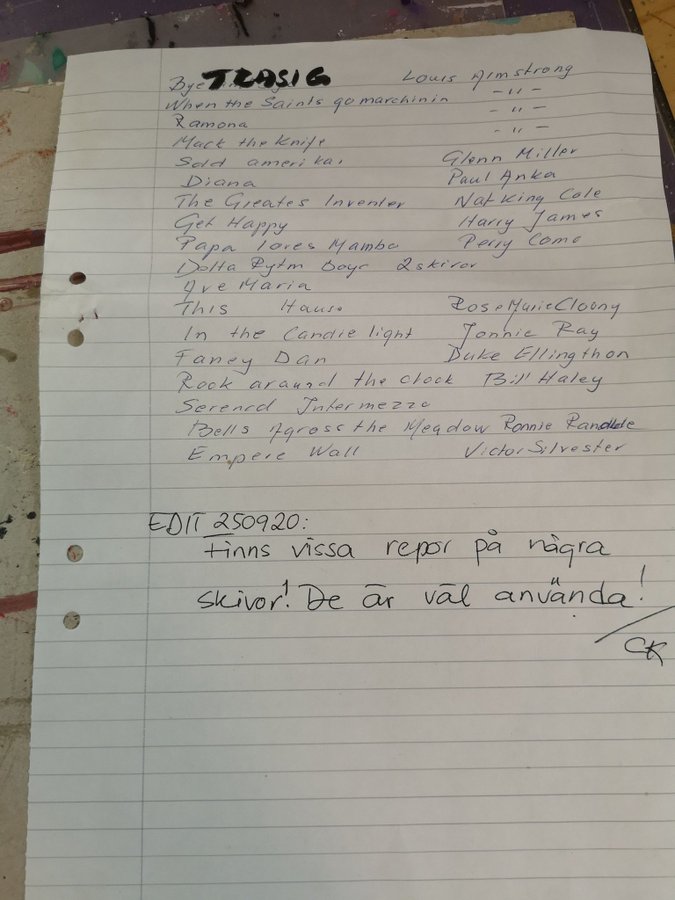 Bye TRASIG Louis Armstrong
When the Saints go marchin in - " -
Ramona - " -
Mack the Knife - " -
Sold amerika, Glenn Miller
Diana Paul Anka
The Greates Inventer Nat King Cole
Get Happy Harry James
Papa loves Mambo Perry Como
Dolta Rytm boys 2 skivor
Ave Maria
This Hause Rose Marie Cloony
In the Candle light Jonnie Ray
Faney Dan Duke Ellingthon
Rock around the clock Bill Haley
Serenad Intermezzo
Bells Agross the Meadow Ronnie Randle
Empere Wall Victor Silvester
EDIT 250920:
Finns vissa repor på några
skivor! De är väl använda!
/CK